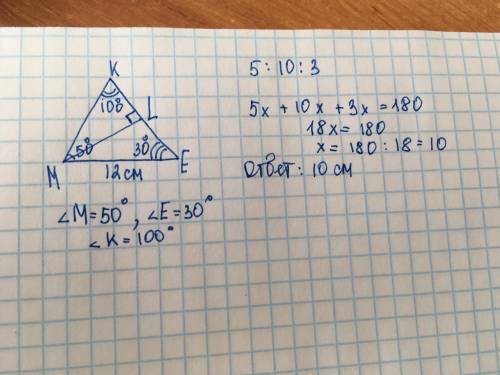 K
100
L
50°
30°
M
E
12 см
∠M=50°, ∠E=30°
∠K=100°
5:10:3
5x+10x+3x=180
18x=180
x=180:18=10
Ответ: 10 см